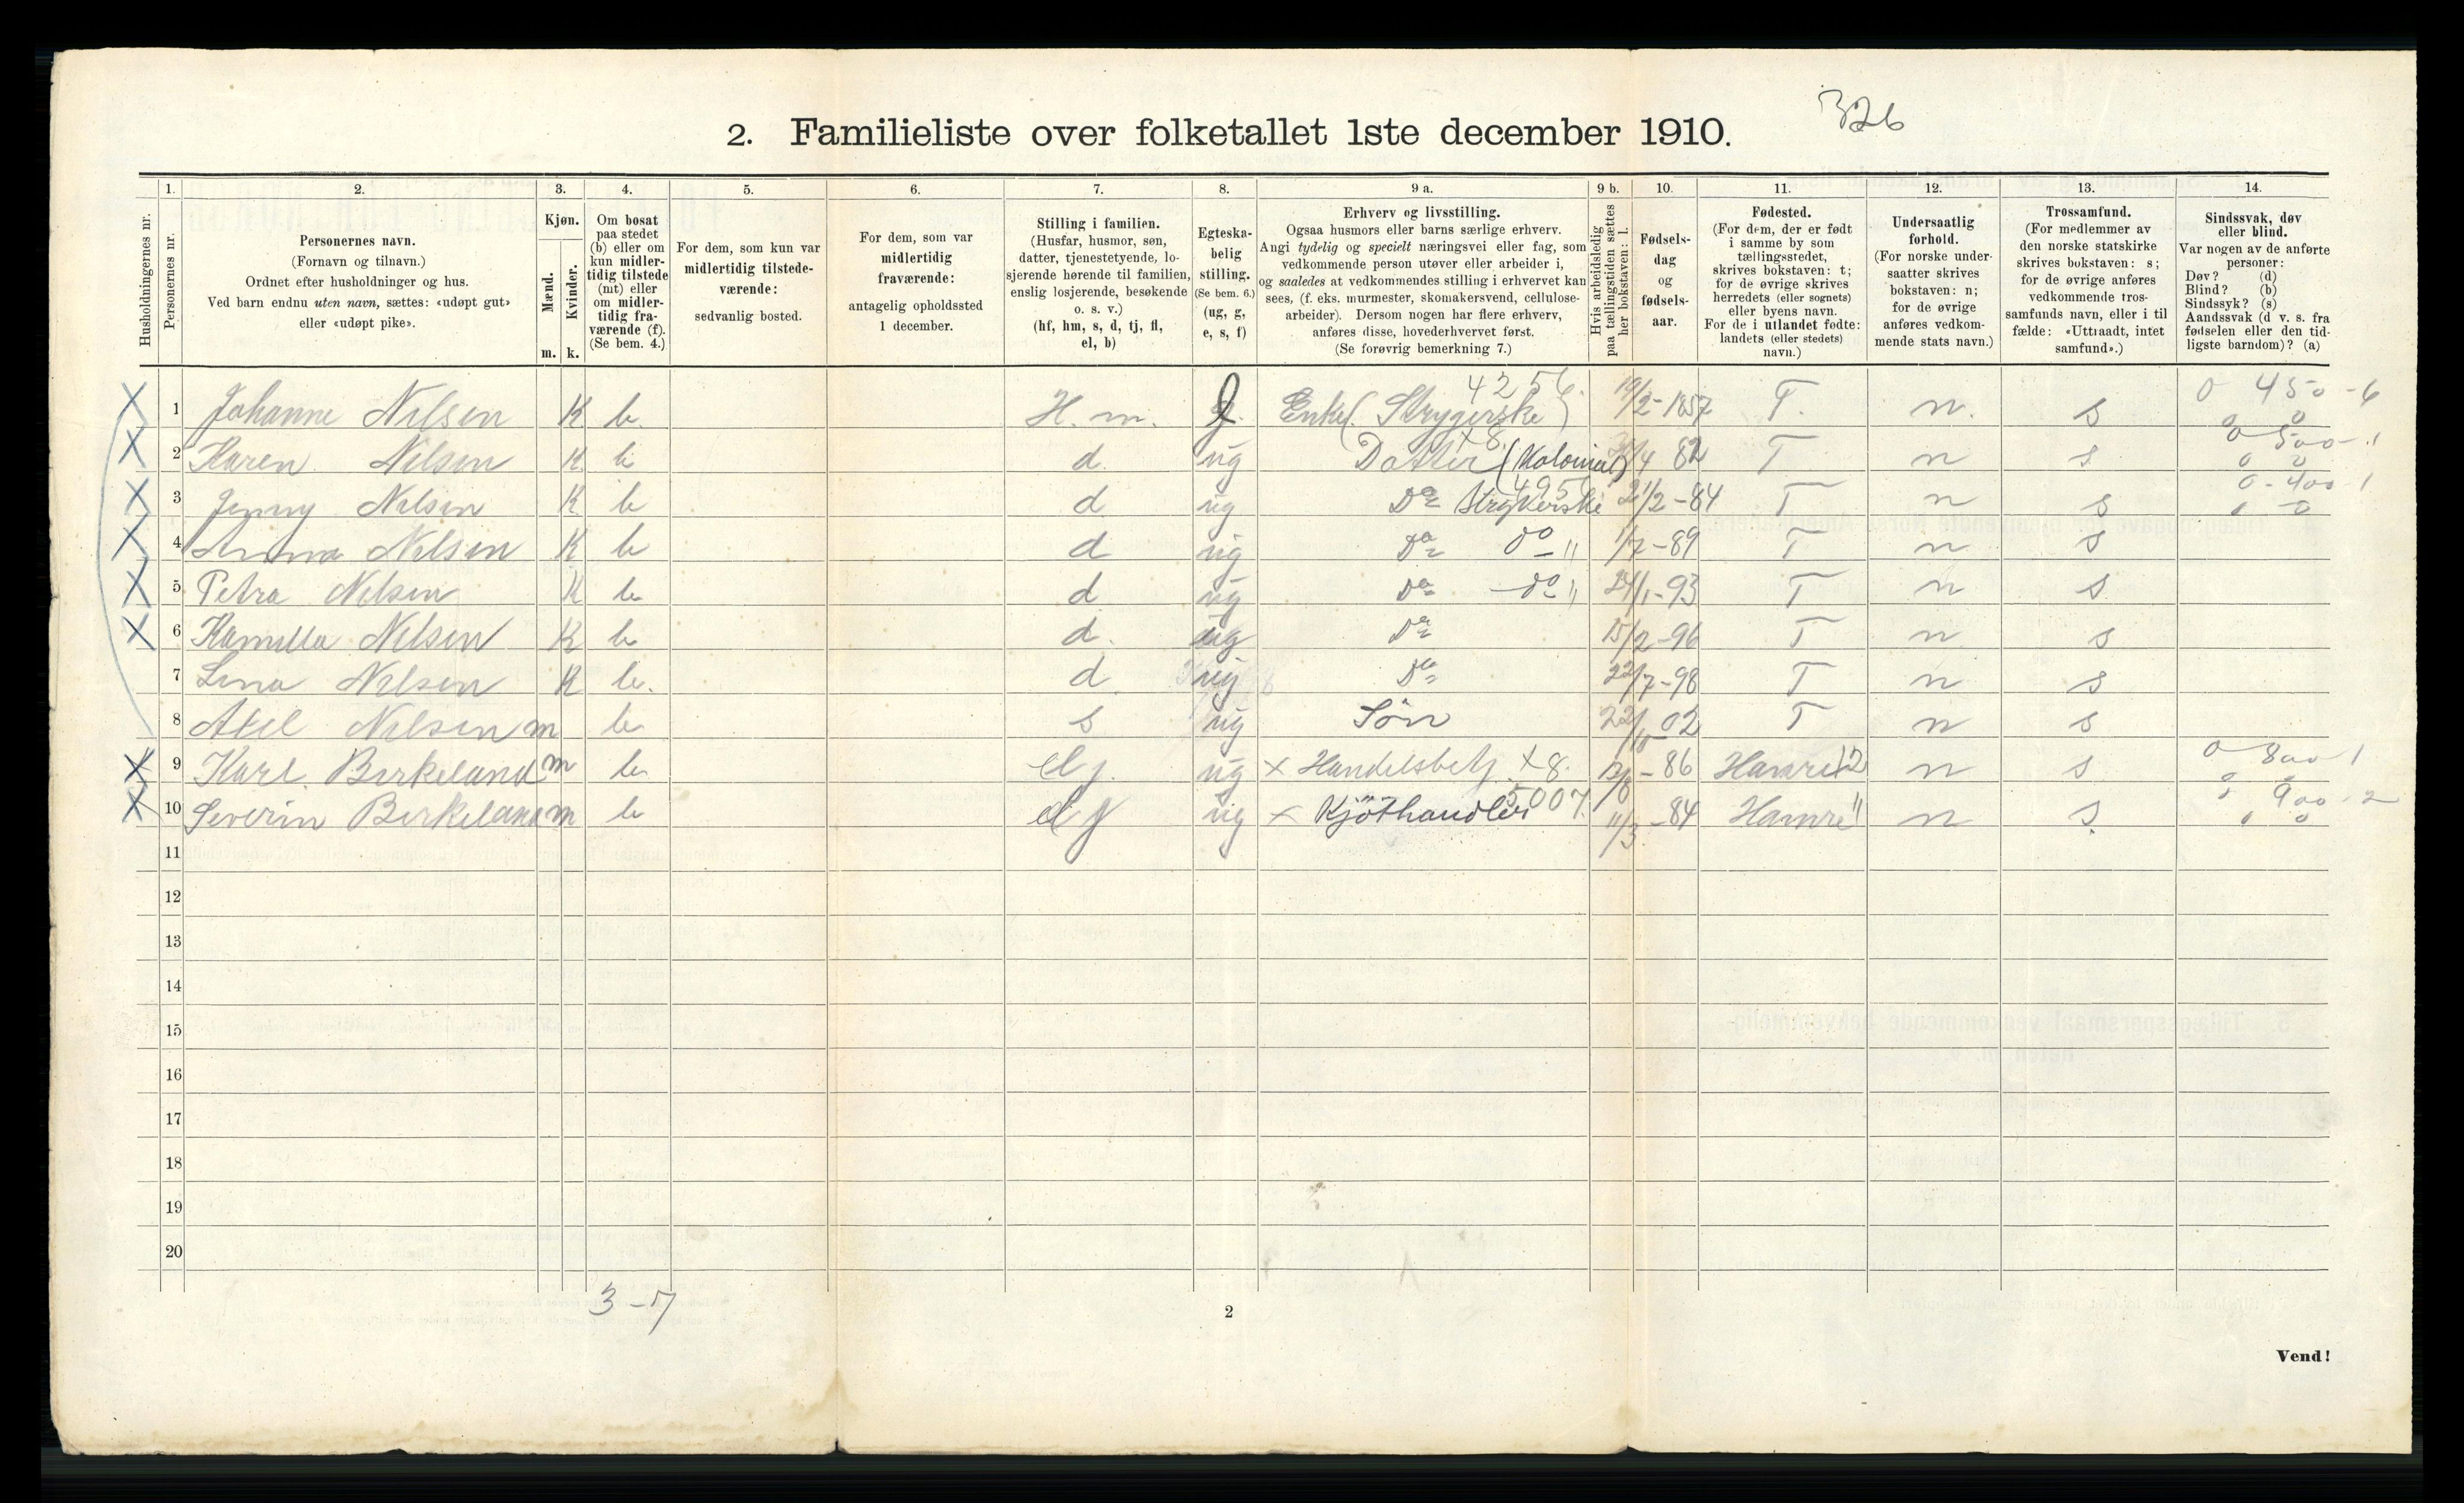 326
2. Familieliste over folketallet 1ste december 1910.
Husholdningernes nr.
1. Personernes nr.
2. Personernes navn.
(Fornavn og tilnavn.)
Ordnet efter husholdninger og hus.
Ved barn endnu uten navn, sættes: «udøpt gut»
eller «udøpt pike».
3. Kjøn.
Mænd. Kvinder.
m. k.
4. Om bosat
paa stedet
(b) eller om
kun midler-
tidig tilstede
(mt) eller
om midler-
tidig fra-
værende (f).
(Se bem. 4.)
5. For dem, som kun var
midlertidig tilstede-
værende:
sedvanlig bosted.
6. For dem, som var
midlertidig
fraværende:
antagelig opholdssted
1 december.
7. Stilling i familien.
(Husfar, husmor, søn,
datter, tjenestetyende, lo-
sjerende hørende til familien,
enslig losjerende, besøkende
o. s. v.)
(hf, hm, s, d, tj, fl,
el, b)
8. Egteska-
belig
stilling.
(Se bem. 6.)
(ug, g,
e, s, f)
9 a. Erhverv og livsstilling.
Ogsaa husmors eller barns særlige erhverv.
Angi tydelig og specielt næringsvei eller fag, som
vedkommende person utøver eller arbeider i,
og saaledes at vedkommendes stilling i erhvervet kan
sees, (f. eks. murmester, skomakersvend, cellulose-
arbeider). Dersom nogen har flere erhverv,
anføres disse, hovederhvervet først.
(Se forøvrig bemerkning 7.)
9 b. Hvis arbeidsledig
paa tællingstiden sættes
her bokstaven: l.
10. Fødsels-
dag
og
fødsels-
aar.
11. Fødested.
(For dem, der er født
i samme by som
tællingsstedet,
skrives bokstaven: t;
for de øvrige skrives
herredets (eller sognets)
eller byens navn.
For de i utlandet fødte:
landets (eller stedets)
navn.)
12. Undersaatlig
forhold.
(For norske under-
saatter skrives
bokstaven: n;
for de øvrige
anføres vedkom-
mende stats navn.)
13. Trossamfund.
(For medlemmer av
den norske statskirke
skrives bokstaven: s;
for de øvrige anføres
vedkommende tros-
samfunds navn, eller i til
fælde: «Uttraadt, intet
samfund».)
14. Sindssvak, døv
eller blind.
Var nogen av de anførte
personer:
Døv? (d)
Blind? (b)
Sindssyk? (s)
Aandssvak (d v. s. fra
fødselen eller den tid-
ligste barndom)? (a)
4256. 0 450-6
X 1 Johanne Nilsen K b. H. m. Enke (Strygerske) 19/2-1857 T. n. s 0 0
x8. 0 500-1
X 2 Karen Nilsen K b d. ug Datter (Kolonial) /4 82 T n s 0 0
0-400-1
X 3 Jenny Nilsen K b d ug Do Strykerske 21/2-84 T n s
X 4 Anna Nilsen K b d ug Do do " 1/7-89 T n s
X 5 Petra Nilsen K b d ug Do do " 24/1-93 T n s
X 6 Kamilla Nilsen K b d. ug Do 15/2-96 T n s
7 Lina Nilsen K b. d ug Do 22/7-98 T n s
8 Axel Nilsen m b s ug Sön 22/10 02 T n s
X 9 Karl. Birkeland m b el j. ug x Handelsbetj. x8. 12/8-86 Hamre 12 n s 0 800-1
5007.
X 10 Severin Birkeland m b el j ug x Kjöthandler 11/3-84 Hamre " n s 900-2
11
12
13
14
15
16
17
18
19
20
3-7
2
Vend!